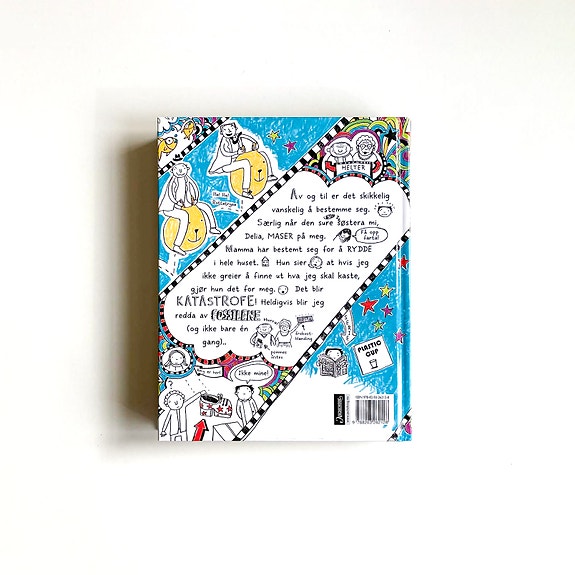 HELTER
Av og til er det skikkelig
vanskelig å bestemme seg.
Særlig når den sure søstera mi,
Delia, MASER på meg.
Få opp
farta!
Mamma har bestemt seg for å RYDDE
i hele huset. Hun sier at hvis jeg
ikke greier å finne ut hva jeg skal kaste,
gjør hun det for meg. Det blir
KATASTROFE! Heldigvis blir jeg
redda av FOSSILENE
(og ikke bare én
gang)..
Ikke mine!
PLASTIC
CUP